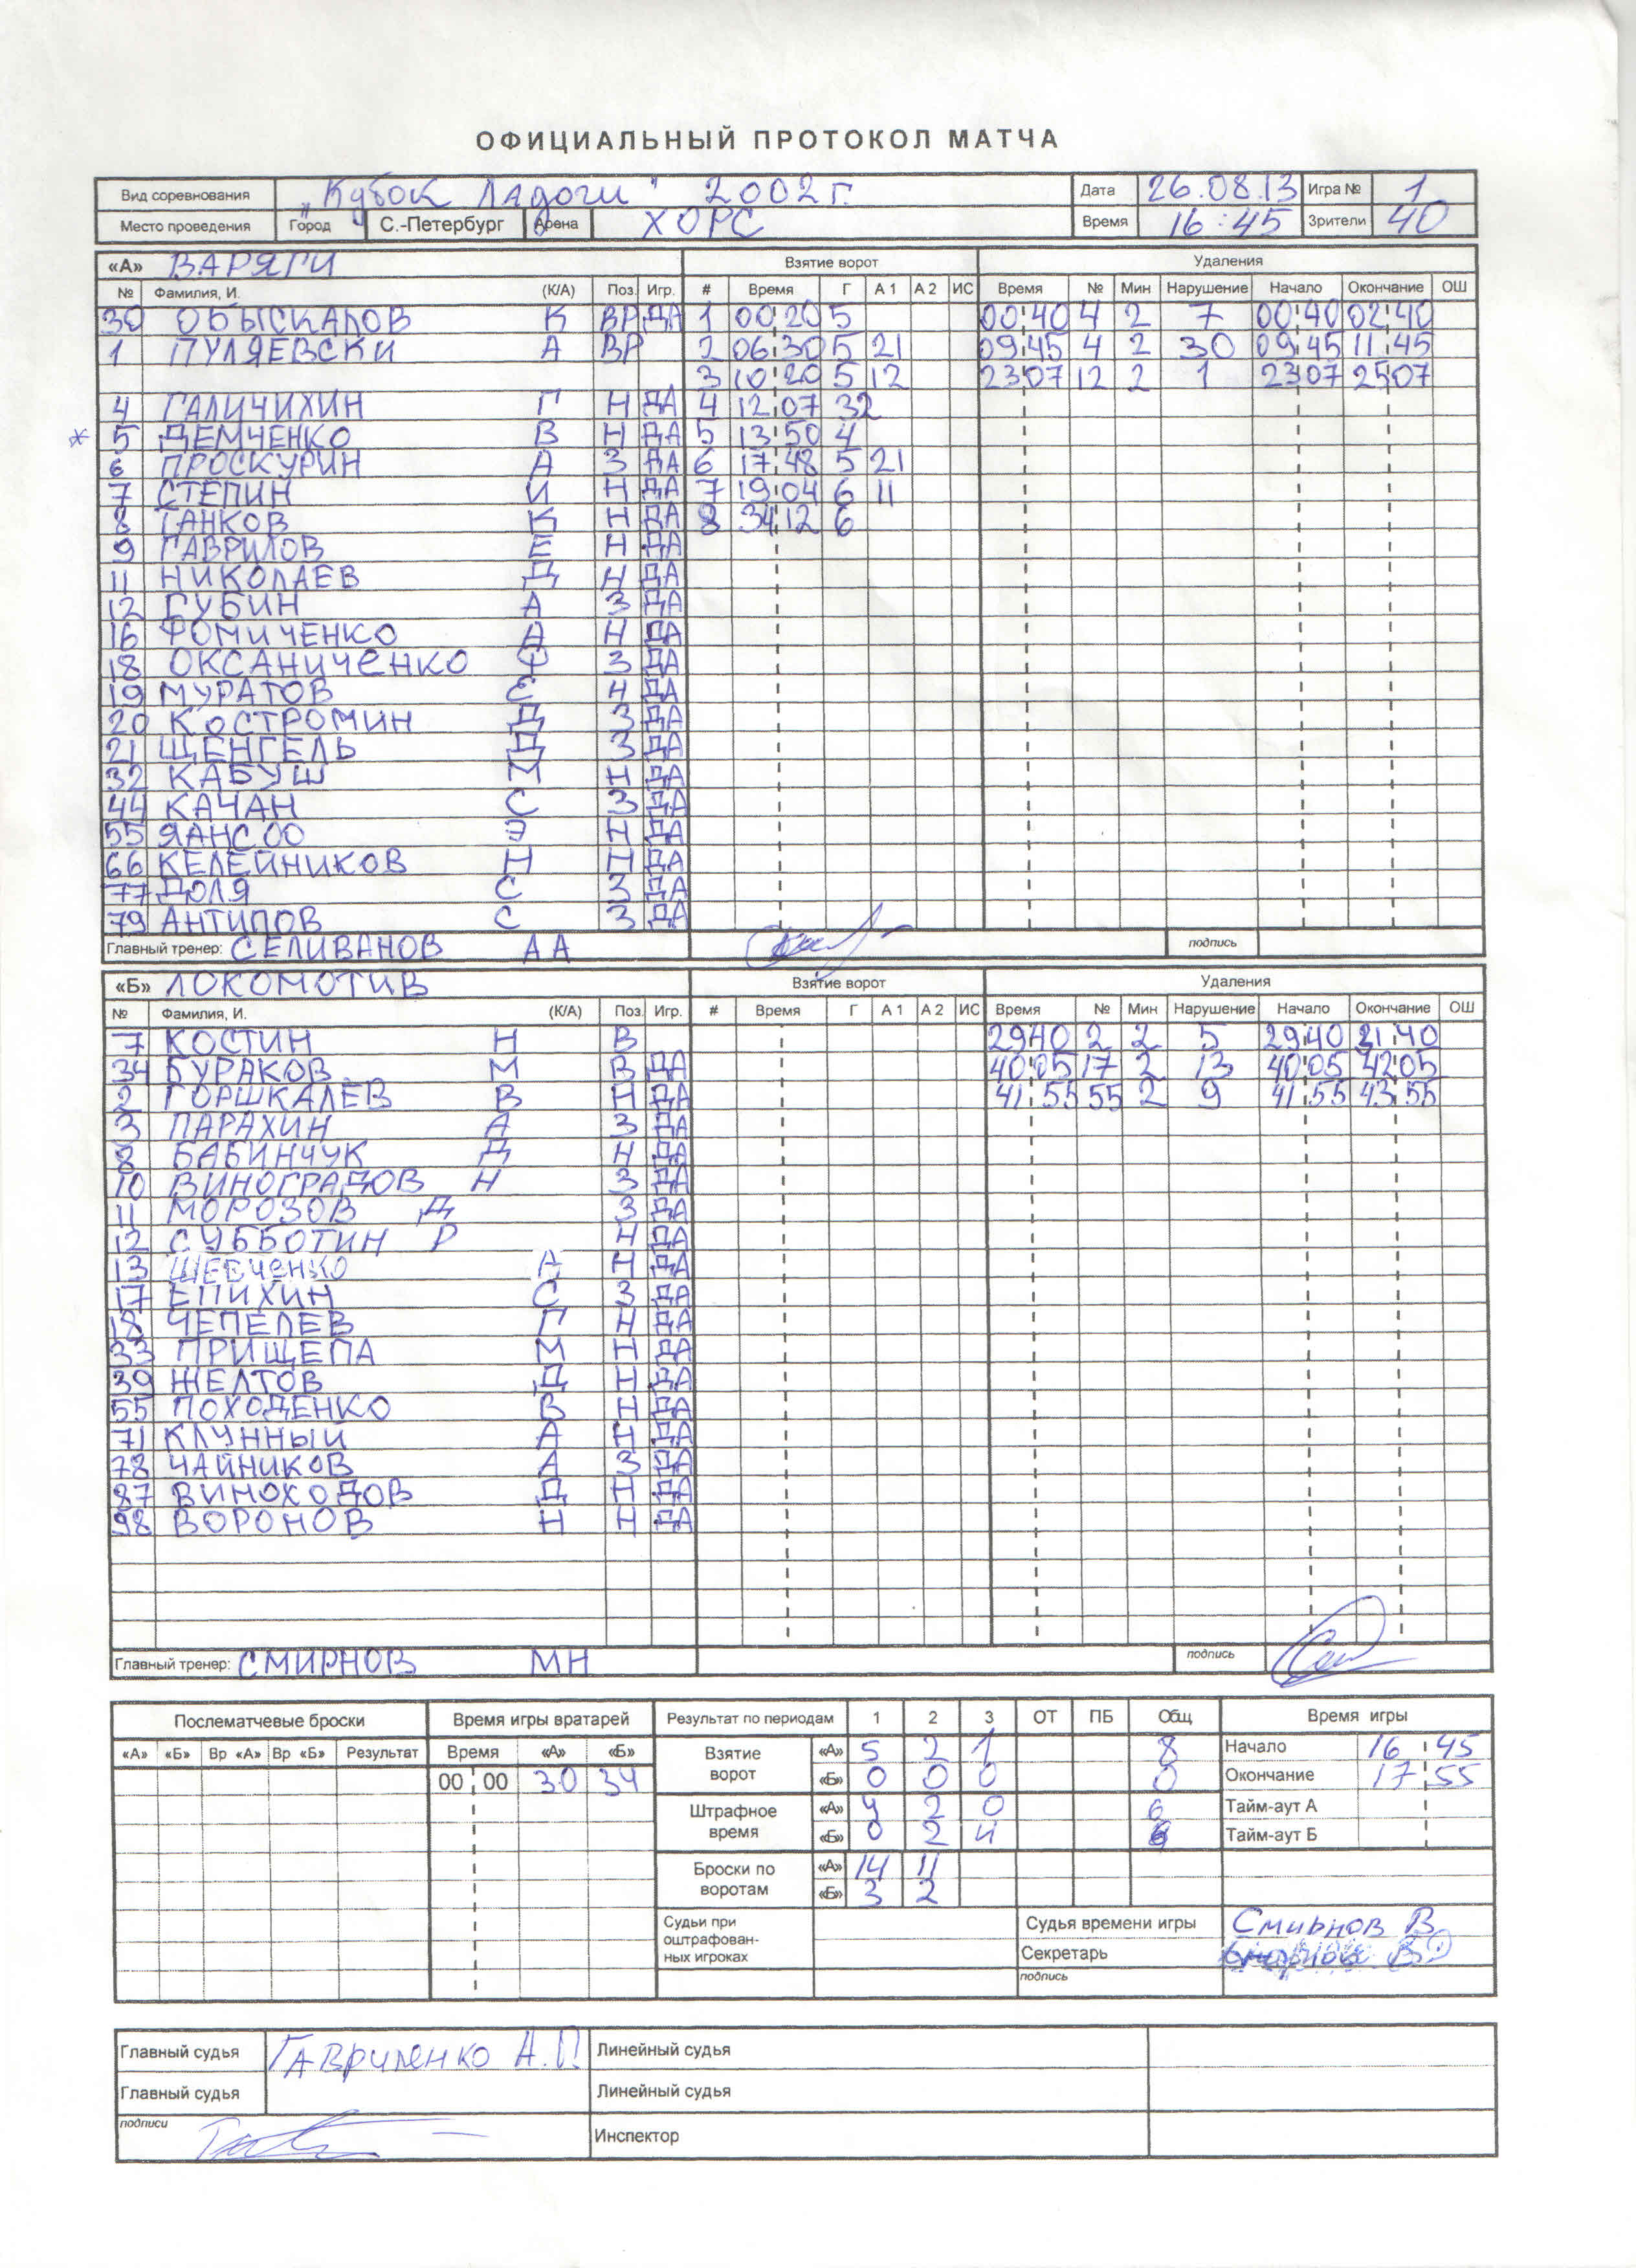 ОФИЦИАЛЬНЫЙ ПРОТОКОЛ МАТЧА
Вид соревнования „Кубок Ладоги" 2002 г. Дата 26.08.13 Игра № 1
Место проведения Город С.-Петербург Арена ХОРС Время 16:45 Зрители 40
«А» ВАРЯГИ Взятие ворот Удаления
№ Фамилия, И. (К/А) Поз. Игр. # Время Г А 1 А 2 ИС Время № Мин Нарушение Начало Окончание ОШ
30 ОБЫСКАЛОВ К ВР ДА 1 00:20 5 00:40 4 2 7 00:40 02:40
1 ПУЛЯЕВСКИ А ВР 2 06:30 5 21 09:45 4 2 30 09:45 11:45
3 10:20 5 12 23 07 12 2 1 23 07 25 07
4 ГАЛИЧИХИН Г Н ДА 4 12:07 32
* 5 ДЕМЧЕНКО В Н ДА 5 13:50 4
6 ПРОСКУРИН А З ДА 6 17:48 5 21
7 СТЕПИН И Н ДА 7 19:04 6 11
8 ТАНКОВ К Н ДА 8 34:12 6
9 ГАВРИЛОВ Е Н ДА
11 НИКОЛАЕВ Д Н ДА
12 ГУБИН А З ДА
16 ФОМИЧЕНКО А Н ДА
18 ОКСАНИЧЕНКО Ф З ДА
19 МУРАТОВ Е Н ДА
20 КОСТРОМИН Д З ДА
21 ЩЕНГЕЛЬ Д З ДА
32 КАБУШ М Н ДА
44 КАЧАН С З ДА
55 ЯАНСОО Э Н ДА
66 КЕЛЕЙНИКОВ Н Н ДА
77 ДОЛЯ С З ДА
79 АНТИПОВ С З ДА
Главный тренер: СЕЛИВАНОВ АА подпись
«Б» ЛОКОМОТИВ Взятие ворот Удаления
№ Фамилия, И. (К/А) Поз. Игр. # Время Г А 1 А 2 ИС Время № Мин Нарушение Начало Окончание ОШ
7 КОСТИН Н В 29 40 2 2 5 29:40 31:40
34 БУРАКОВ М В ДА 40 05 17 2 13 40:05 42:05
2 ГОРШКАЛЕВ В Н ДА 41:55 55 2 9 41:55 43:55
3 ПАРАХИН А З ДА
8 БАБИНЧУК Д Н ДА
10 ВИНОГРАДОВ Н З ДА
11 МОРОЗОВ Д З ДА
12 СУББОТИН Р Н ДА
13 ШЕВЧЕНКО А Н ДА
17 ЕПИХИН С З ДА
18 ЧЕПЕЛЕВ Г Н ДА
33 ПРИЩЕПА М Н ДА
39 ЖЕЛТОВ Д Н ДА
55 ПОХОДЕНКО В Н ДА
71 КЛУННЫЙ А Н ДА
78 ЧАЙНИКОВ А З ДА
87 ВИНОХОДОВ Д Н ДА
98 ВОРОНОВ Н Н ДА
Главный тренер: СМИРНОВ МН подпись
Послематчевые броски Время игры вратарей Результат по периодам 1 2 3 ОТ ПБ Общ Время игры
«А» «Б» Вр «А» Вр «Б» Результат Время «А» «Б» Взятие ворот «А» 5 2 1 8 Начало 16:45
00:00 30 34 «Б» 0 0 0 0 Окончание 17:55
Штрафное время «А» 4 2 0 6 Тайм-аут А
«Б» 0 2 4 6 Тайм-аут Б
Броски по воротам «А» 14 11
«Б» 3 2
Судьи при оштрафован- ных игроках Судья времени игры Смирнов В.
Секретарь
подпись
Главный судья Гавриленко А.П. Линейный судья
Главный судья Линейный судья
подписи Инспектор